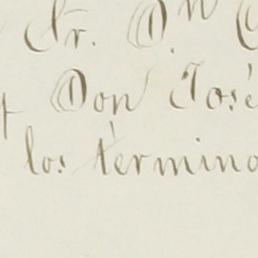 Sr. D.n
Don José
los término